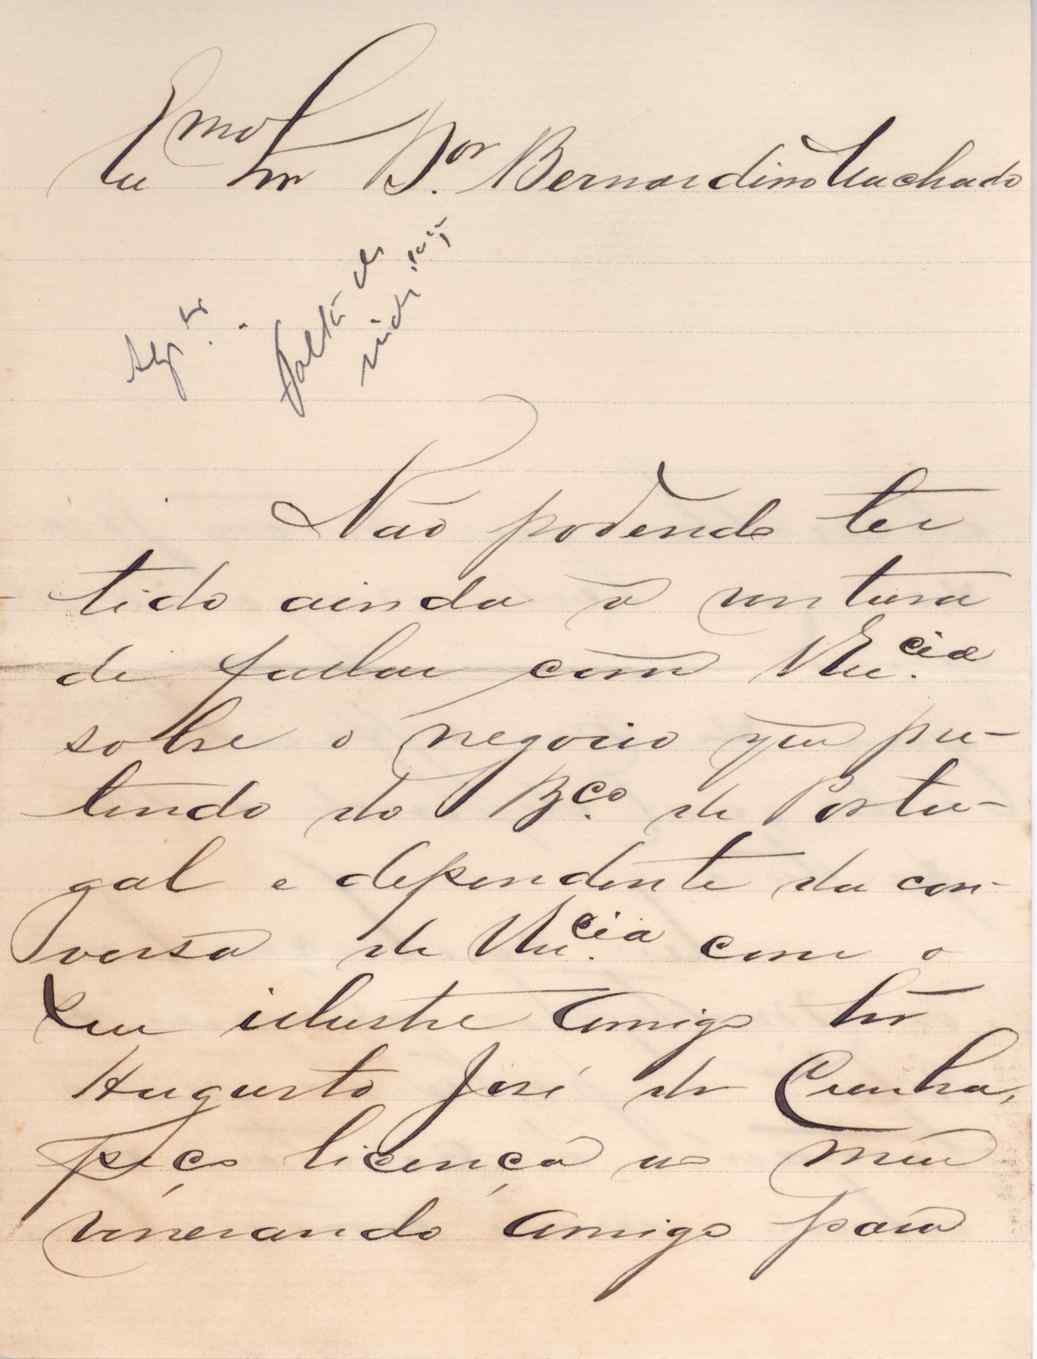 Exmo
Sr Dor Bernardino Machado
Falta de
Não podendo ter
tido ainda a ventura
de fallar com V Exc.cia
sobre o negocio que pre-
tendo do B.co de Portu-
gal e dependente da con-
versa de V Exc.cia com o
seu illustre amigo Snr
Augusto José da Cunha,
peço licença ao meu
venerando amigo para